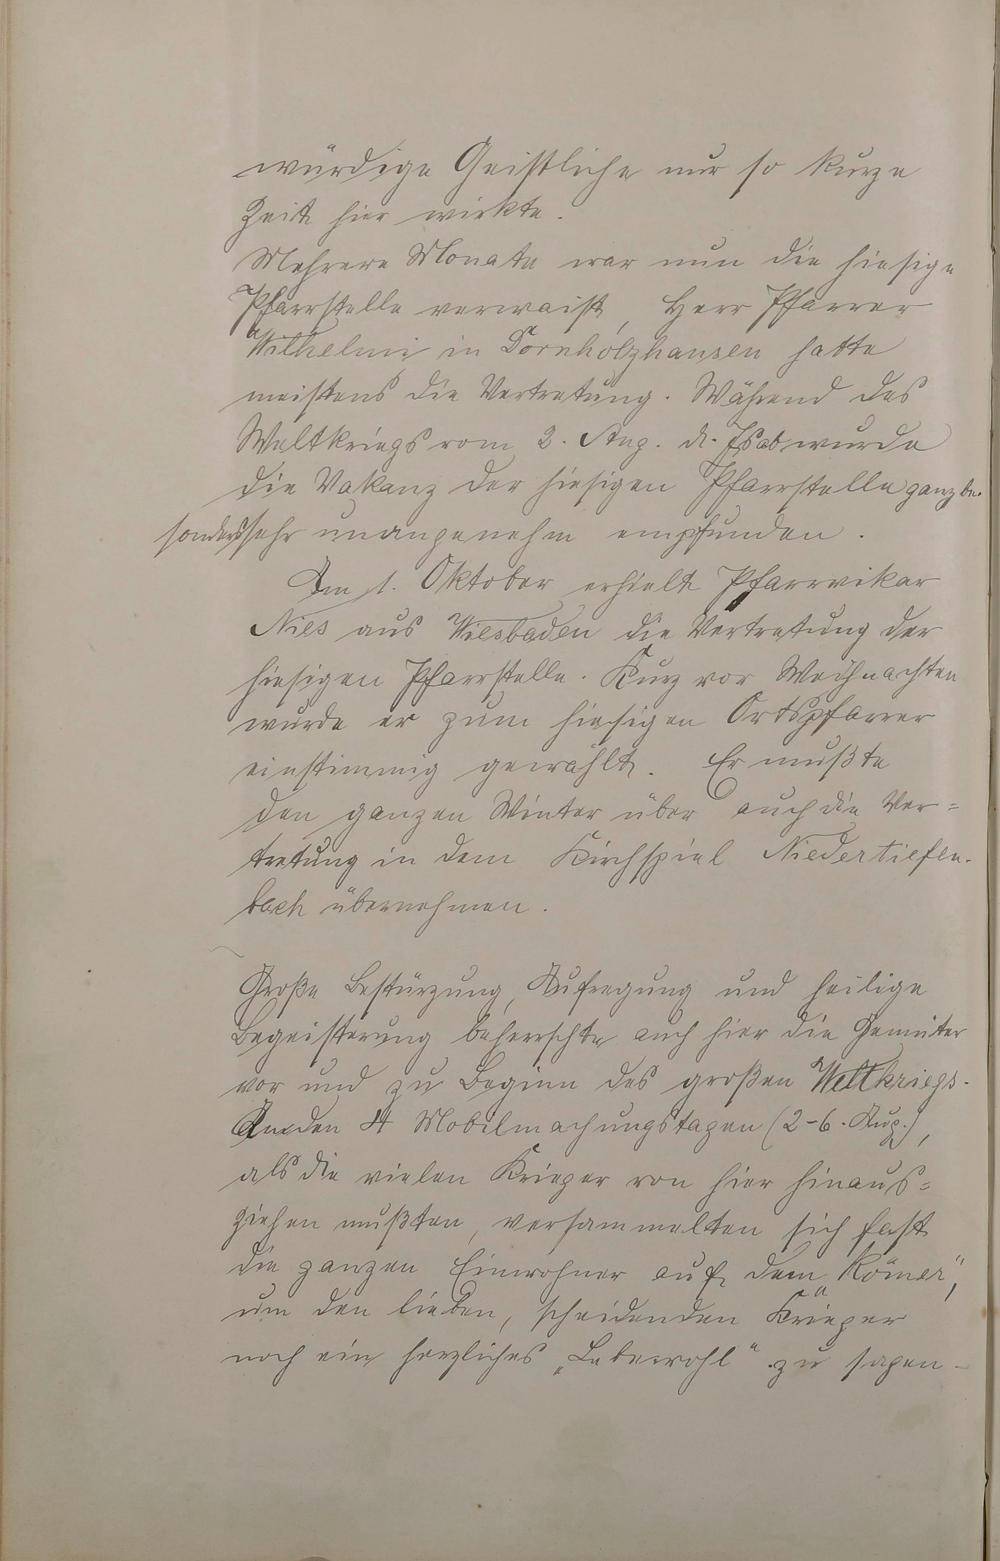 würdige Geistliche nur so kurze
Zeit hier wirkte.
Mehrere Monate war nun die hiesige
Pfarrstelle verwaist, Herr Pfarrer
Wilhelmi in Dornholzhausen hatte
meistens die Vertretung. Während des
Weltkriegs vom 2. Aug. d. Js ab wurde
die Vakanz der hiesigen Pfarrstelle ganz be-
sonders sehr unangenehm empfunden.
Am 1. Oktober erhielt Pfarrvikar
Nies aus Wiesbaden die Vertretung der
hiesigen Pfarrstelle. Kurz vor Weihnachten
wurde er zum hiesigen Ortspfarrer
einstimmig gewählt. Er mußte
den ganzen Winter über auch die Ver=
tretung in dem Kirchspiel Niedertiefen-
bach übernehmen.
Große Bestürzung, Aufregung und heilige
Begeisterung beherrschte auch hier die Gemüter
vor und zu Beginn des großen Weltkriegs.
An den 4 Mobilmachungstagen (2-6. Aug.),
als die vielen Krieger von hier hinaus=
ziehen mußten, versammelten sich fast
die ganzen Einwohner auf dem „Römer",
um den lieben, scheidenden Krieger
noch ein herzliches „Lebewohl" zu sagen -